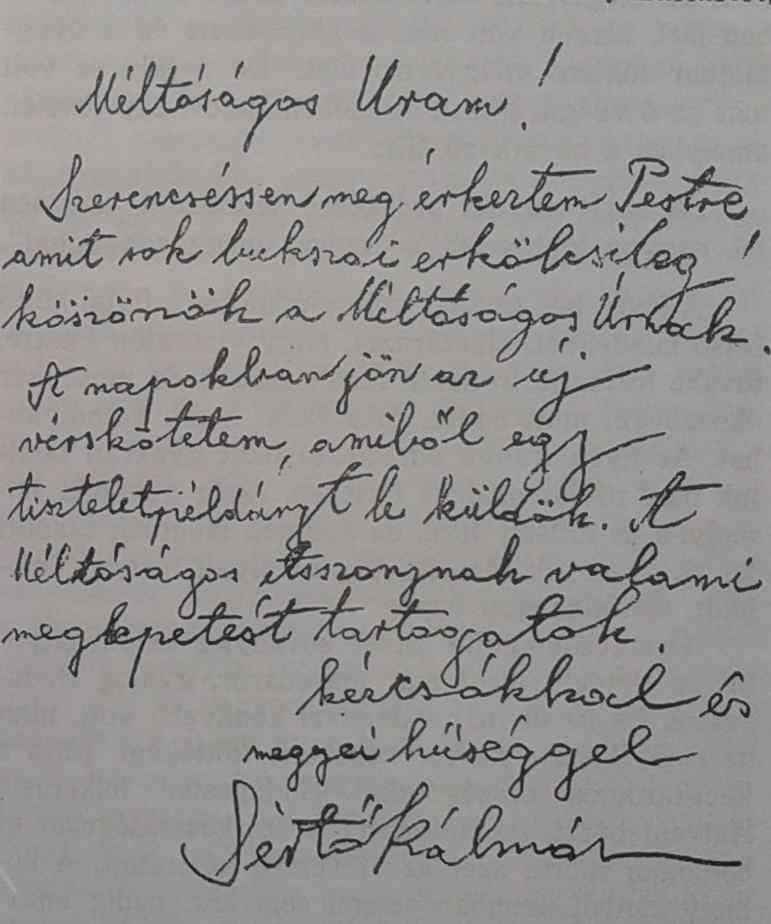 Méltóságos Uram!
Szerencséssen meg érkeztem Pestre
amit sok bukszai erkölcsileg!
köszönök a Méltóságos Úrnak.
A napokban jön az új
vérskötetem, amiből egy
tiszteletpéldányt le küldök. A
Méltóságos Asszonynak valami
meglepetést tartogatok.
kézcsókkal és
megyei hűséggel
Sértő Kálmán